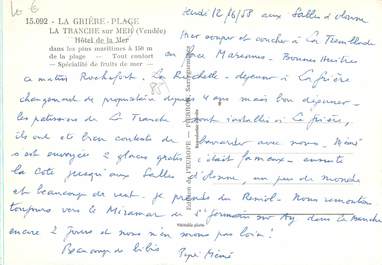 10 €
15.092 - LA GRIÈRE-PLAGE
LA TRANCHE sur MER (Vendée)
Hôtel de la Mer
dans les pins maritimes à 150 m
de la plage — Tout confort
— Spécialité de fruits de mer —
Jeudi 12/6/58 aux Sables d'olonne
Hier souper et coucher à La Tremblade
en face Marennes - Bonnes Huitres
ce matin Rochefort - La Rochelle - dejeuner à La Grière
(85)
changement de propriétaire depuis 4 ans mais bon dejeuner -
les patissiers de La Tranche sont installés à La Grière,
ils ont été bien contents de bavarder avec nous - Mémé
s'est envoyée 2 glaces c'était fameux - ensuite
la côte jusqu'aux Sables d'olonne, un peu de monde
et beaucoup de vent - je prends du - Nous remontons
toujours vers le Miramar de St Germain sur Ay dans la manche
encore 2 jours et nous n'en serons pas loin!
Beaucoup de bibis Pépé Mémé
Edition d'Art "EUROPE" - PIERRON, Sarreguemines
Véritable photo